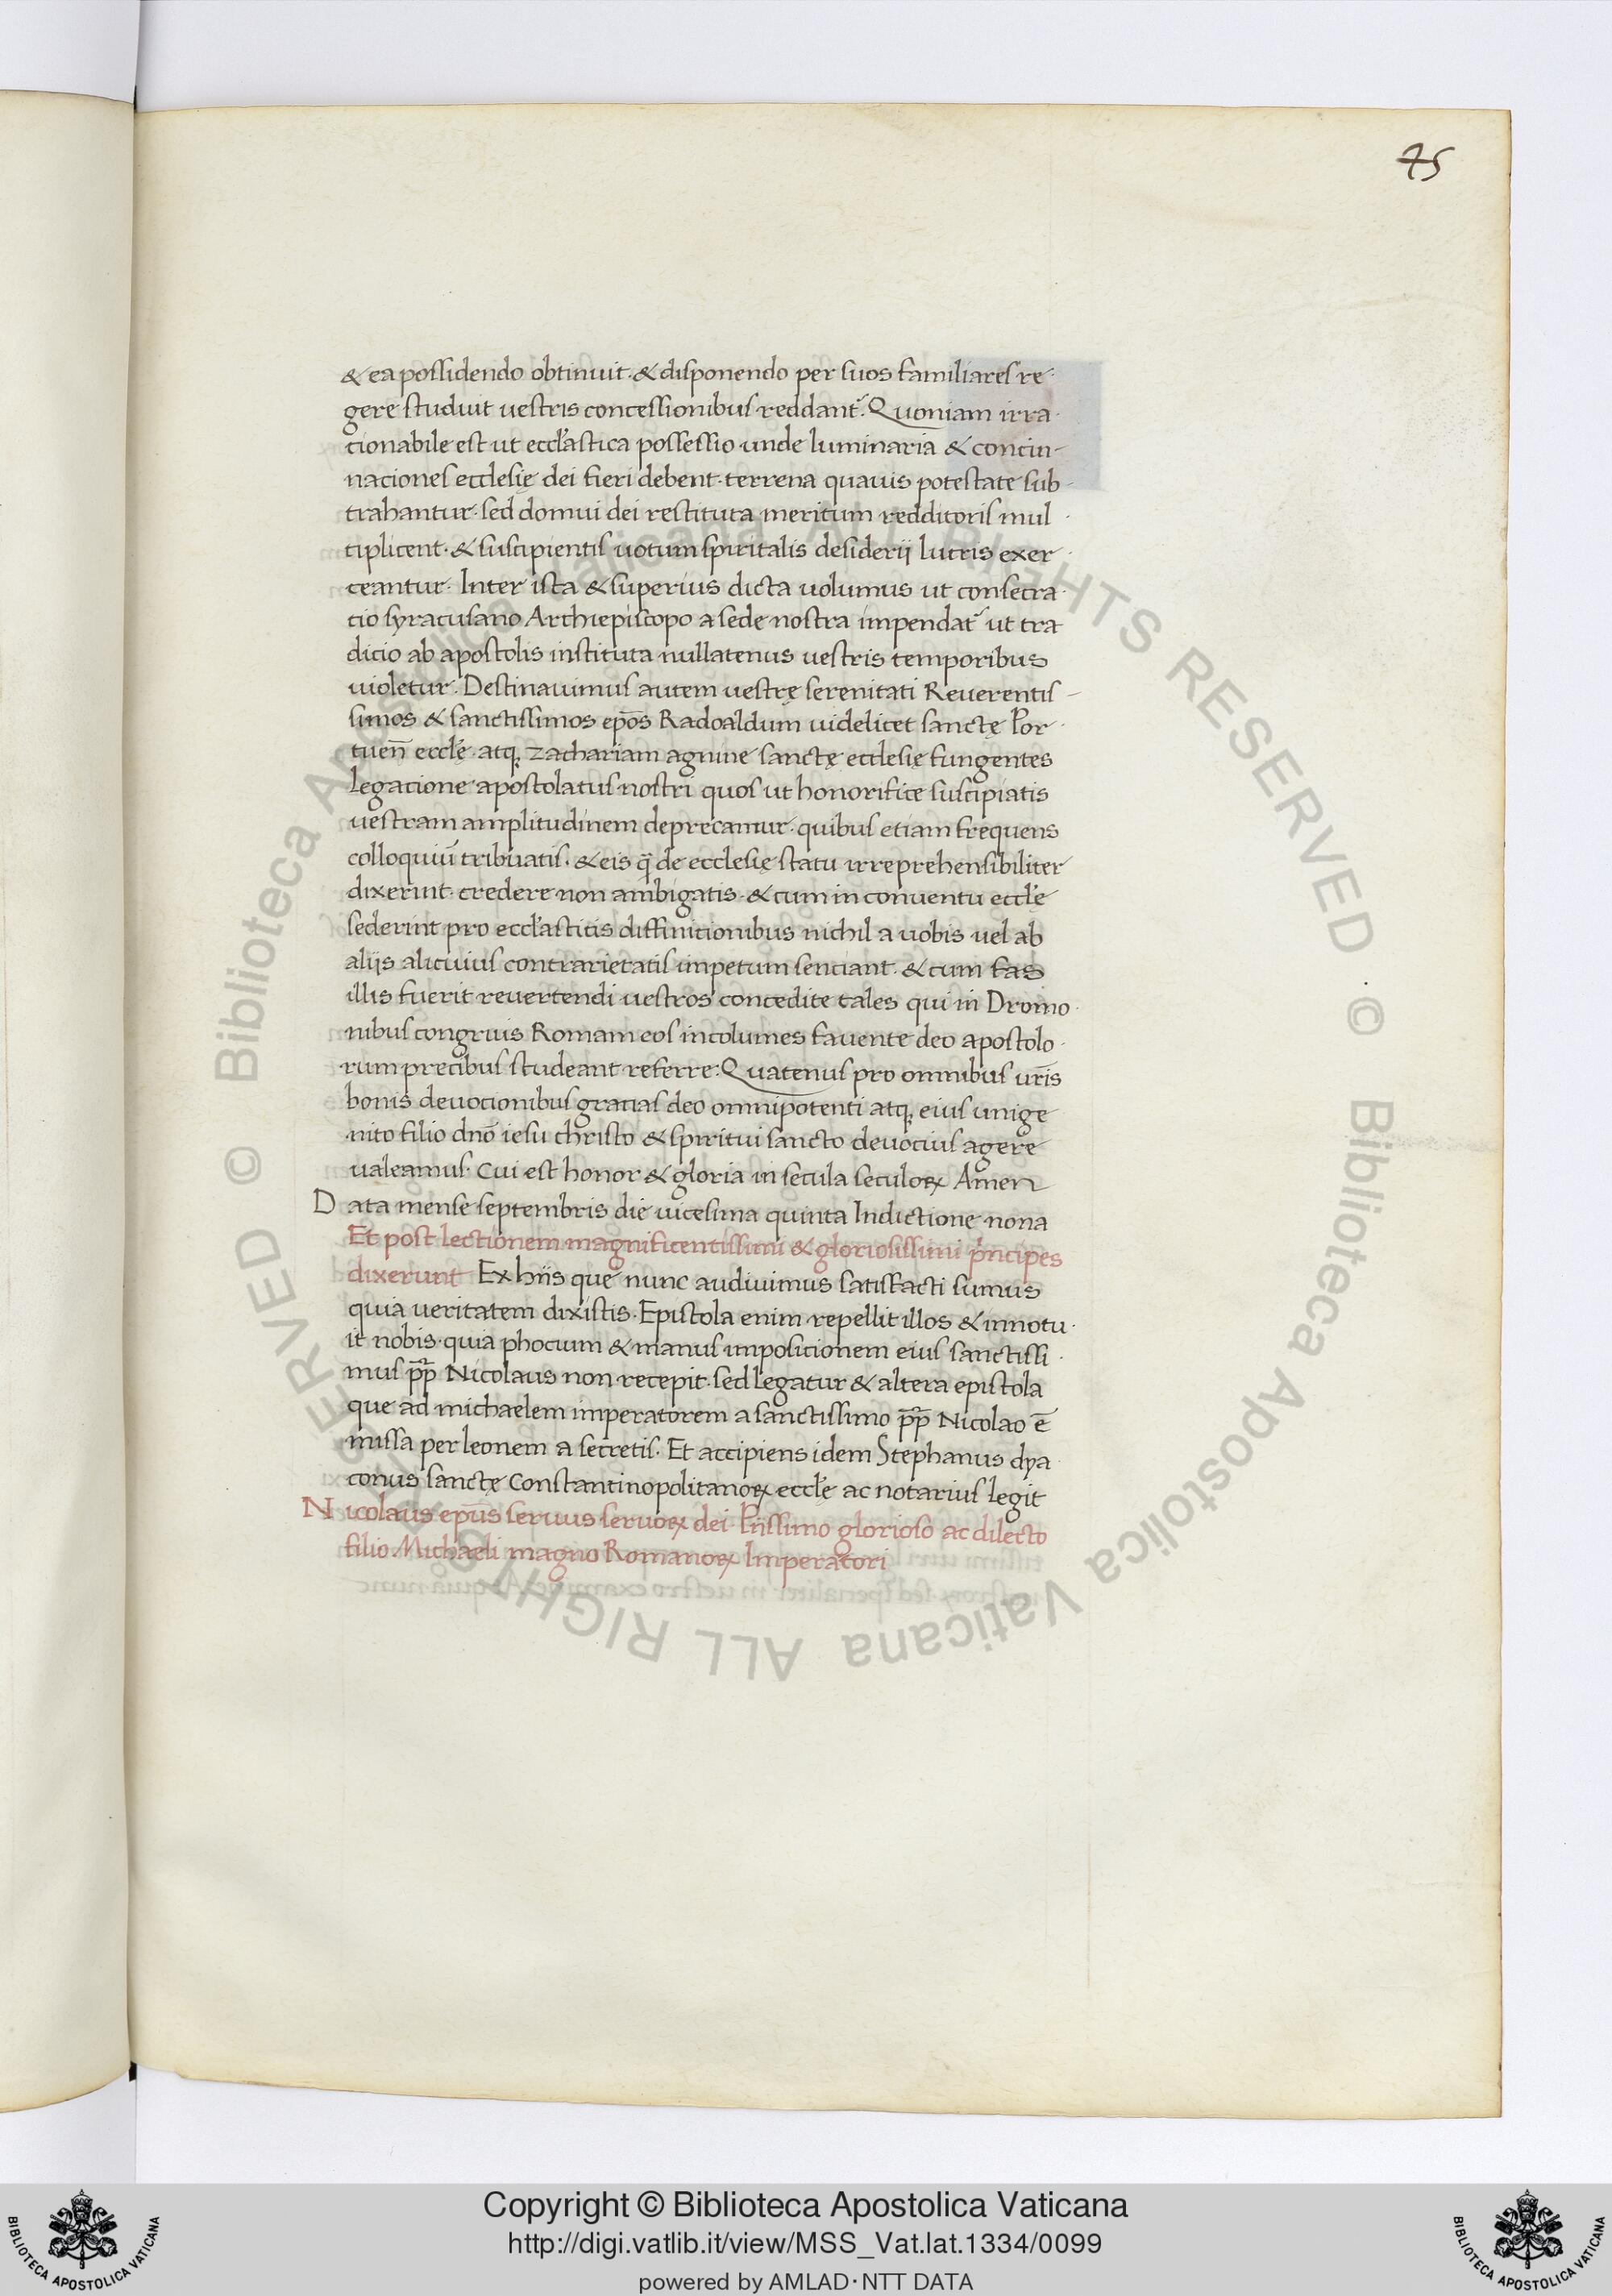 45
& ea possidendo obtinuit. & disponendo per suos familiares re-
gere studuit uestris concessionibus reddant᷑. Quoniam irra-
cionabile est ut eccl̓astica possessio unde luminaria & concin-
naciones ecclesię dei fieri debent. terrena quauis potestate sub-
trahantur. sed domui dei restituta meritum redditoris mul-
tiplicent. & suscipientis uotum spiritalis desiderij lucris exer-
ceantur. Inter ista & superius dicta uolumus ut consecra-
cio syracusano Archiepiscopo a sede nostra impendat᷑ ut tra
dicio ab apostolis instituta nullatenus uestris temporibus
uioletur. Destinauimus autem uestrę serenitati Reuerentis-
simos & sanctissimos ep̄os Radoaldum uidelicet sanctę Por-
tuen̄ eccl̓ę. atq; zachariam agnine sanctę ecclesię fungentes
legacione apostolatus nostri quos ut honorifice suscipiatis
uestram amplitudinem deprecamur. quibus etiam frequens
colloquiū tribuatis. & eis q̄ de ecclesię statu irreprehensibiliter
dixerint. credere non ambigatis. & cum in conuentu eccl̓e
sederint pro eccl̓asticis diffinitionibus nichil a uobis uel ab
alijs alicuius contrarietatis impetum senciant. & cum fas
illis fuerit reuertendi uestros concedite tales qui in Dromo-
nibus congruis Romam eos incolumes fauente deo apostolo-
rum precibus studeant referre. Quatenus pro omnibus ur̄is
bonis deuocionibus gracias deo omnipotenti atq; eius unige
nito filio dn̄o iesu christo & spiritui sancto deuocius agere
ualeamus. Cui est honor & gloria in secula seculoꝝ Amen
Data mense septembris die uicesima quinta Indictione nona
Et post lectionem magnificentissimi & gloriosissimi p̓ncipes
dixerunt Ex hiis que nunc audiuimus satisfacti sumus
quia ueritatem dixistis. Epistola enim repellit illos & innotu-
it nobis. quia phocium & manus imposicionem eius sanctissi-
mus pp̄ Nicolaus non recepit. sed legatur & altera epistola
que ad michaelem imperatorem a sanctissimo pp̄ Nicolao ē
missa per leonem a secretis. Et accipiens idem Stephanus dya-
conus sanctę Constantinopolitanoꝝ eccl̓ę ac notarius legit
Nicolaus ep̄us seruus seruoꝝ dei. Piissimo glorioso ac dilecto
filio Michaeli magno Romanoꝝ Imperatori
© Biblioteca Apostolica Vaticana ALL RIGHTS RESERVED · © Biblioteca Apostolica Vaticana ALL RIGHTS RESERVED
Copyright © Biblioteca Apostolica Vaticana
http://digi.vatlib.it/view/MSS_Vat.lat.1334/0099
powered by AMLAD·NTT DATA
BIBLIOTECA APOSTOLICA VATICANA
BIBLIOTECA APOSTOLICA VATICANA